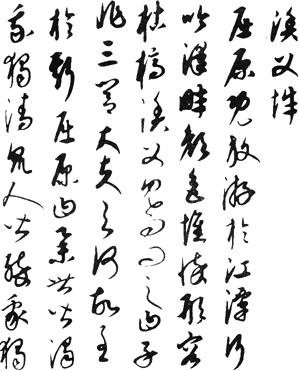 漁父辭
屈原既放游於江潭行
吟澤畔顏色憔悴形容
枯槁漁父見而問之曰子
非三閭大夫與何故至
於斯屈原曰舉世皆濁
我獨清眾人皆醉我獨